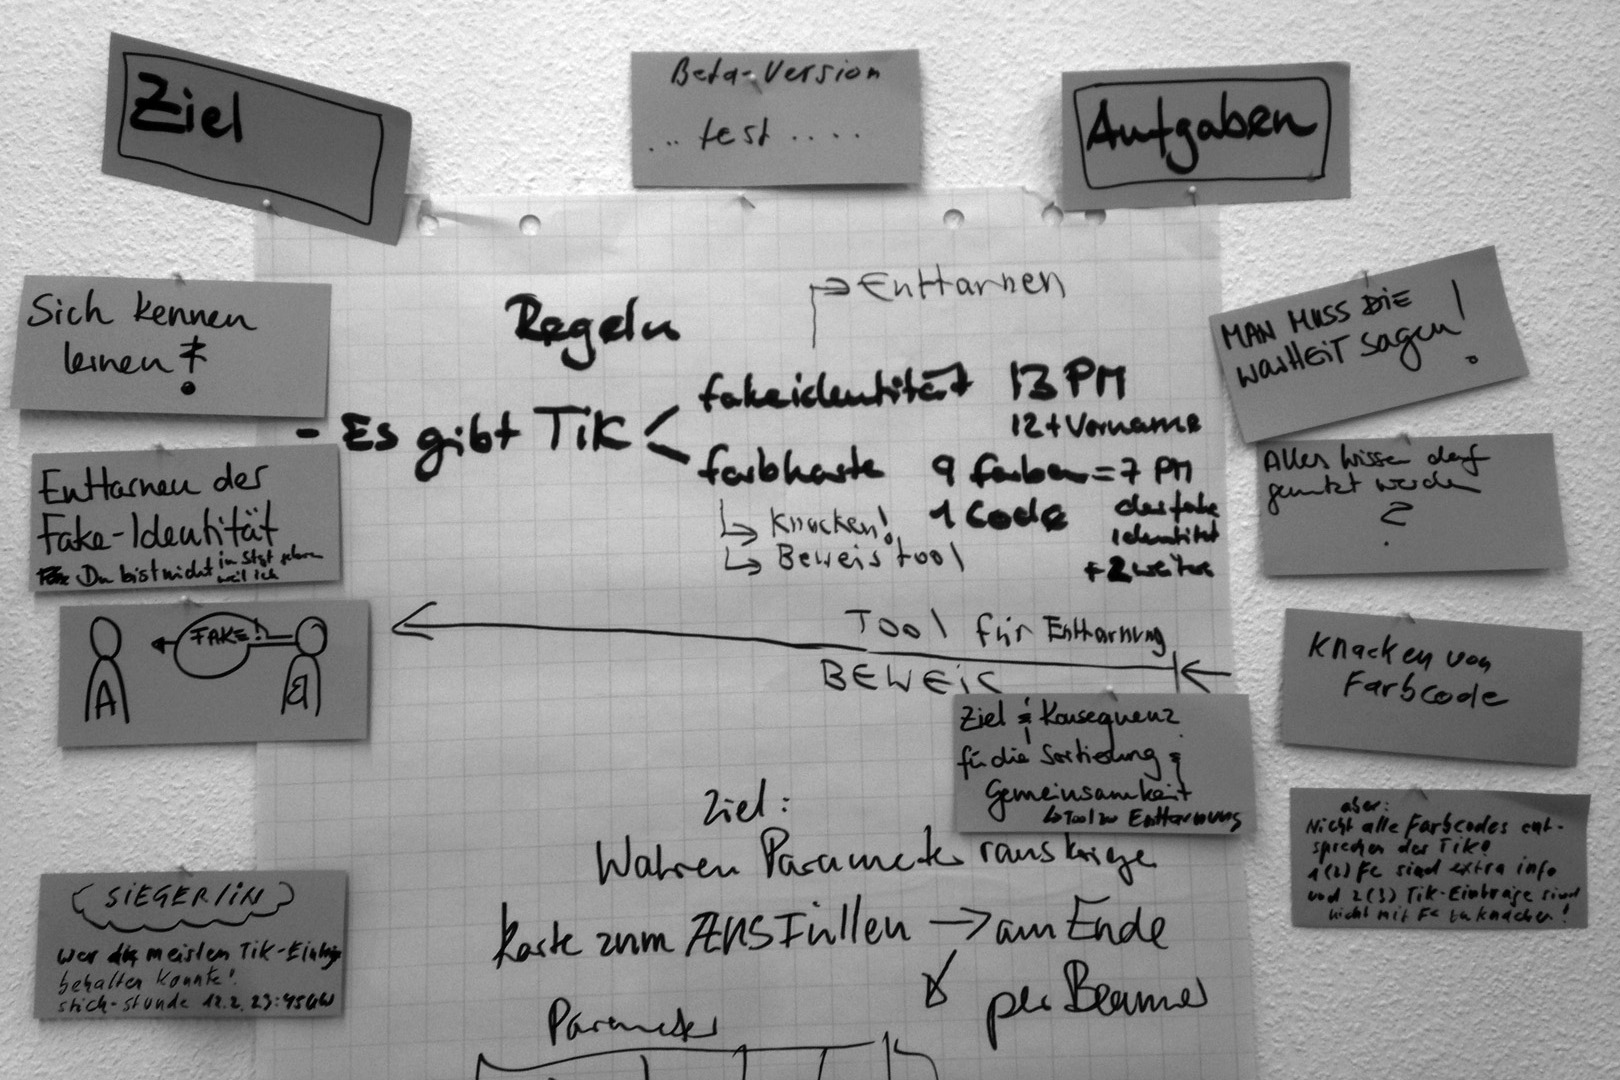 Ziel
Beta-Version
... test ....
Aufgaben
Sich kennen
lernen!
Enttarnen der
Fake-Identität
Du bist nicht in Stgt geboren
weil ich
A
FAKE!
B
SIEGER/IN
wer die meisten TiK-Einträge
behalten konnte!
stich-stunde 12.2. 23:45Uhr
Regeln
Enttarnen
- Es gibt TiK
fakeidentität 13 PM
12+Vorname
farbkarte 9 farben = 7 PM
1 Code der fake
identität
+ 2 weitere
Knacken!
Beweistool
Tool für Enttarnung
BEWEIS
Ziel & Konsequenz
für die Sortierung &
Gemeinsamkeit
Tool zu Enttarnung
Ziel:
Wahren Parameter rauskriege
Karte zum AUSFüllen → am Ende
per Beamer
Parameter
MAN MUSS DIE
WARHEIT sagen!
Alles Wissen darf
genutzt werden
?
Knacken von
Farbcode
aber:
Nicht alle Farbcodes ent-
sprechen der TiK!
1(2) Fc sind extra info
und 2(3) TiK-Einträge sind
nicht mit Fc zu knacken!